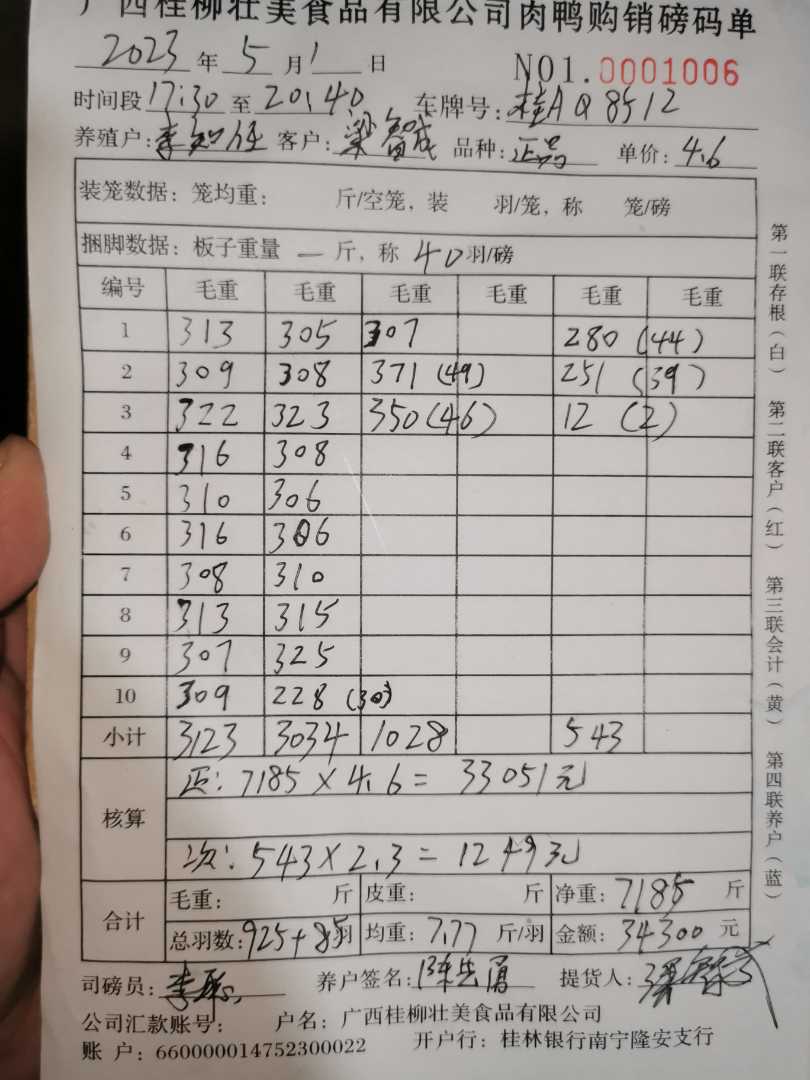 广西桂柳壮美食品有限公司肉鸭购销磅码单
2023年 5月1日 NO1.0001006
时间段17:30至20:40 车牌号:桂AQ8512
养殖户:李知任 客户:梁智诚 品种:正品 单价:4.6
装笼数据:笼均重: 斤/空笼,装 羽/笼,称 笼/磅
捆脚数据:板子重量 一 斤,称 40羽/磅
编号 毛重 毛重 毛重 毛重 毛重 毛重
1 313 305 307 280 (44)
2 309 308 371 (49) 251 (39)
3 322 323 350(46) 12 (2)
4 316 308
5 310 306
6 316 306
7 308 310
8 313 315
9 307 325
10 309 228 (30)
小计 3123 3034 1028 543
核算 正:7185×4.6= 33051元
次:543×2.3=1249元
合计 毛重: 斤 皮重: 斤 净重:7185斤
总羽数:925+85羽 均重:7.77斤/羽 金额:34300元
司磅员:李 养户签名:陈 勇 提货人:梁智诚
公司汇款账号: 户名:广西桂柳壮美食品有限公司
账 户:660000014752300022 开户行:桂林银行南宁隆安支行
第一联存根(白) 第二联客户(红) 第三联会计(黄) 第四联养户(蓝)